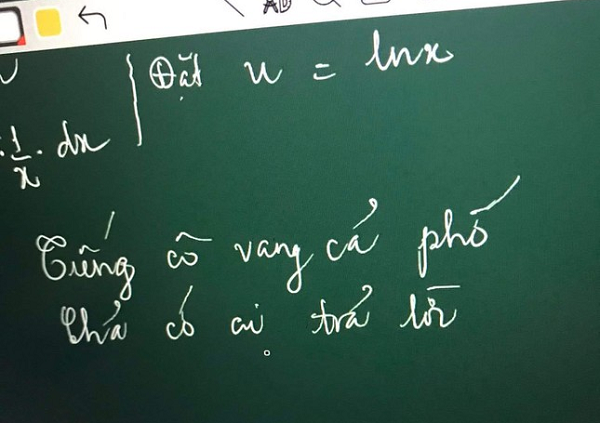 Đặt u = lnx
. 1/x . dx
Tiếng cô vang cả phố
Chả có ai trả lời